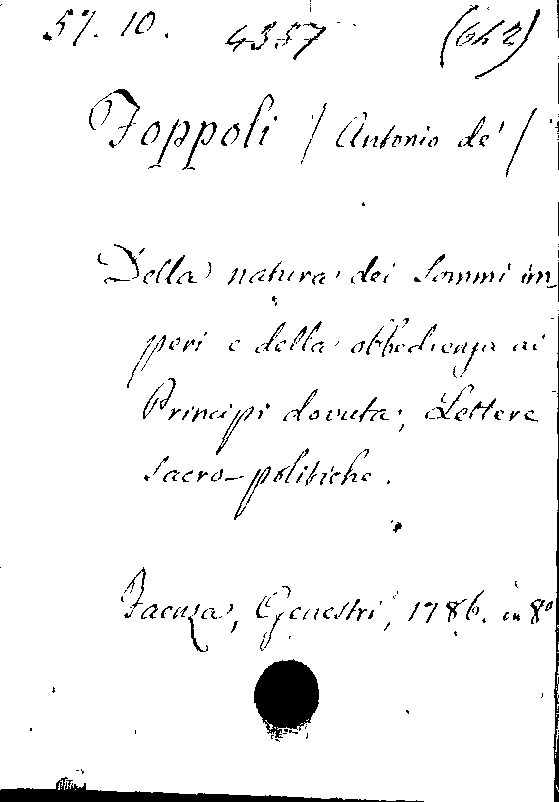 57. 10. 4357 (642)
Foppoli / Antonio de' /
Della natura dei Sommi im
peri e della obbedienza ai
Principi dovuta; Lettere
sacro-politiche.
Faenza, Genestri, 1786. in 8°